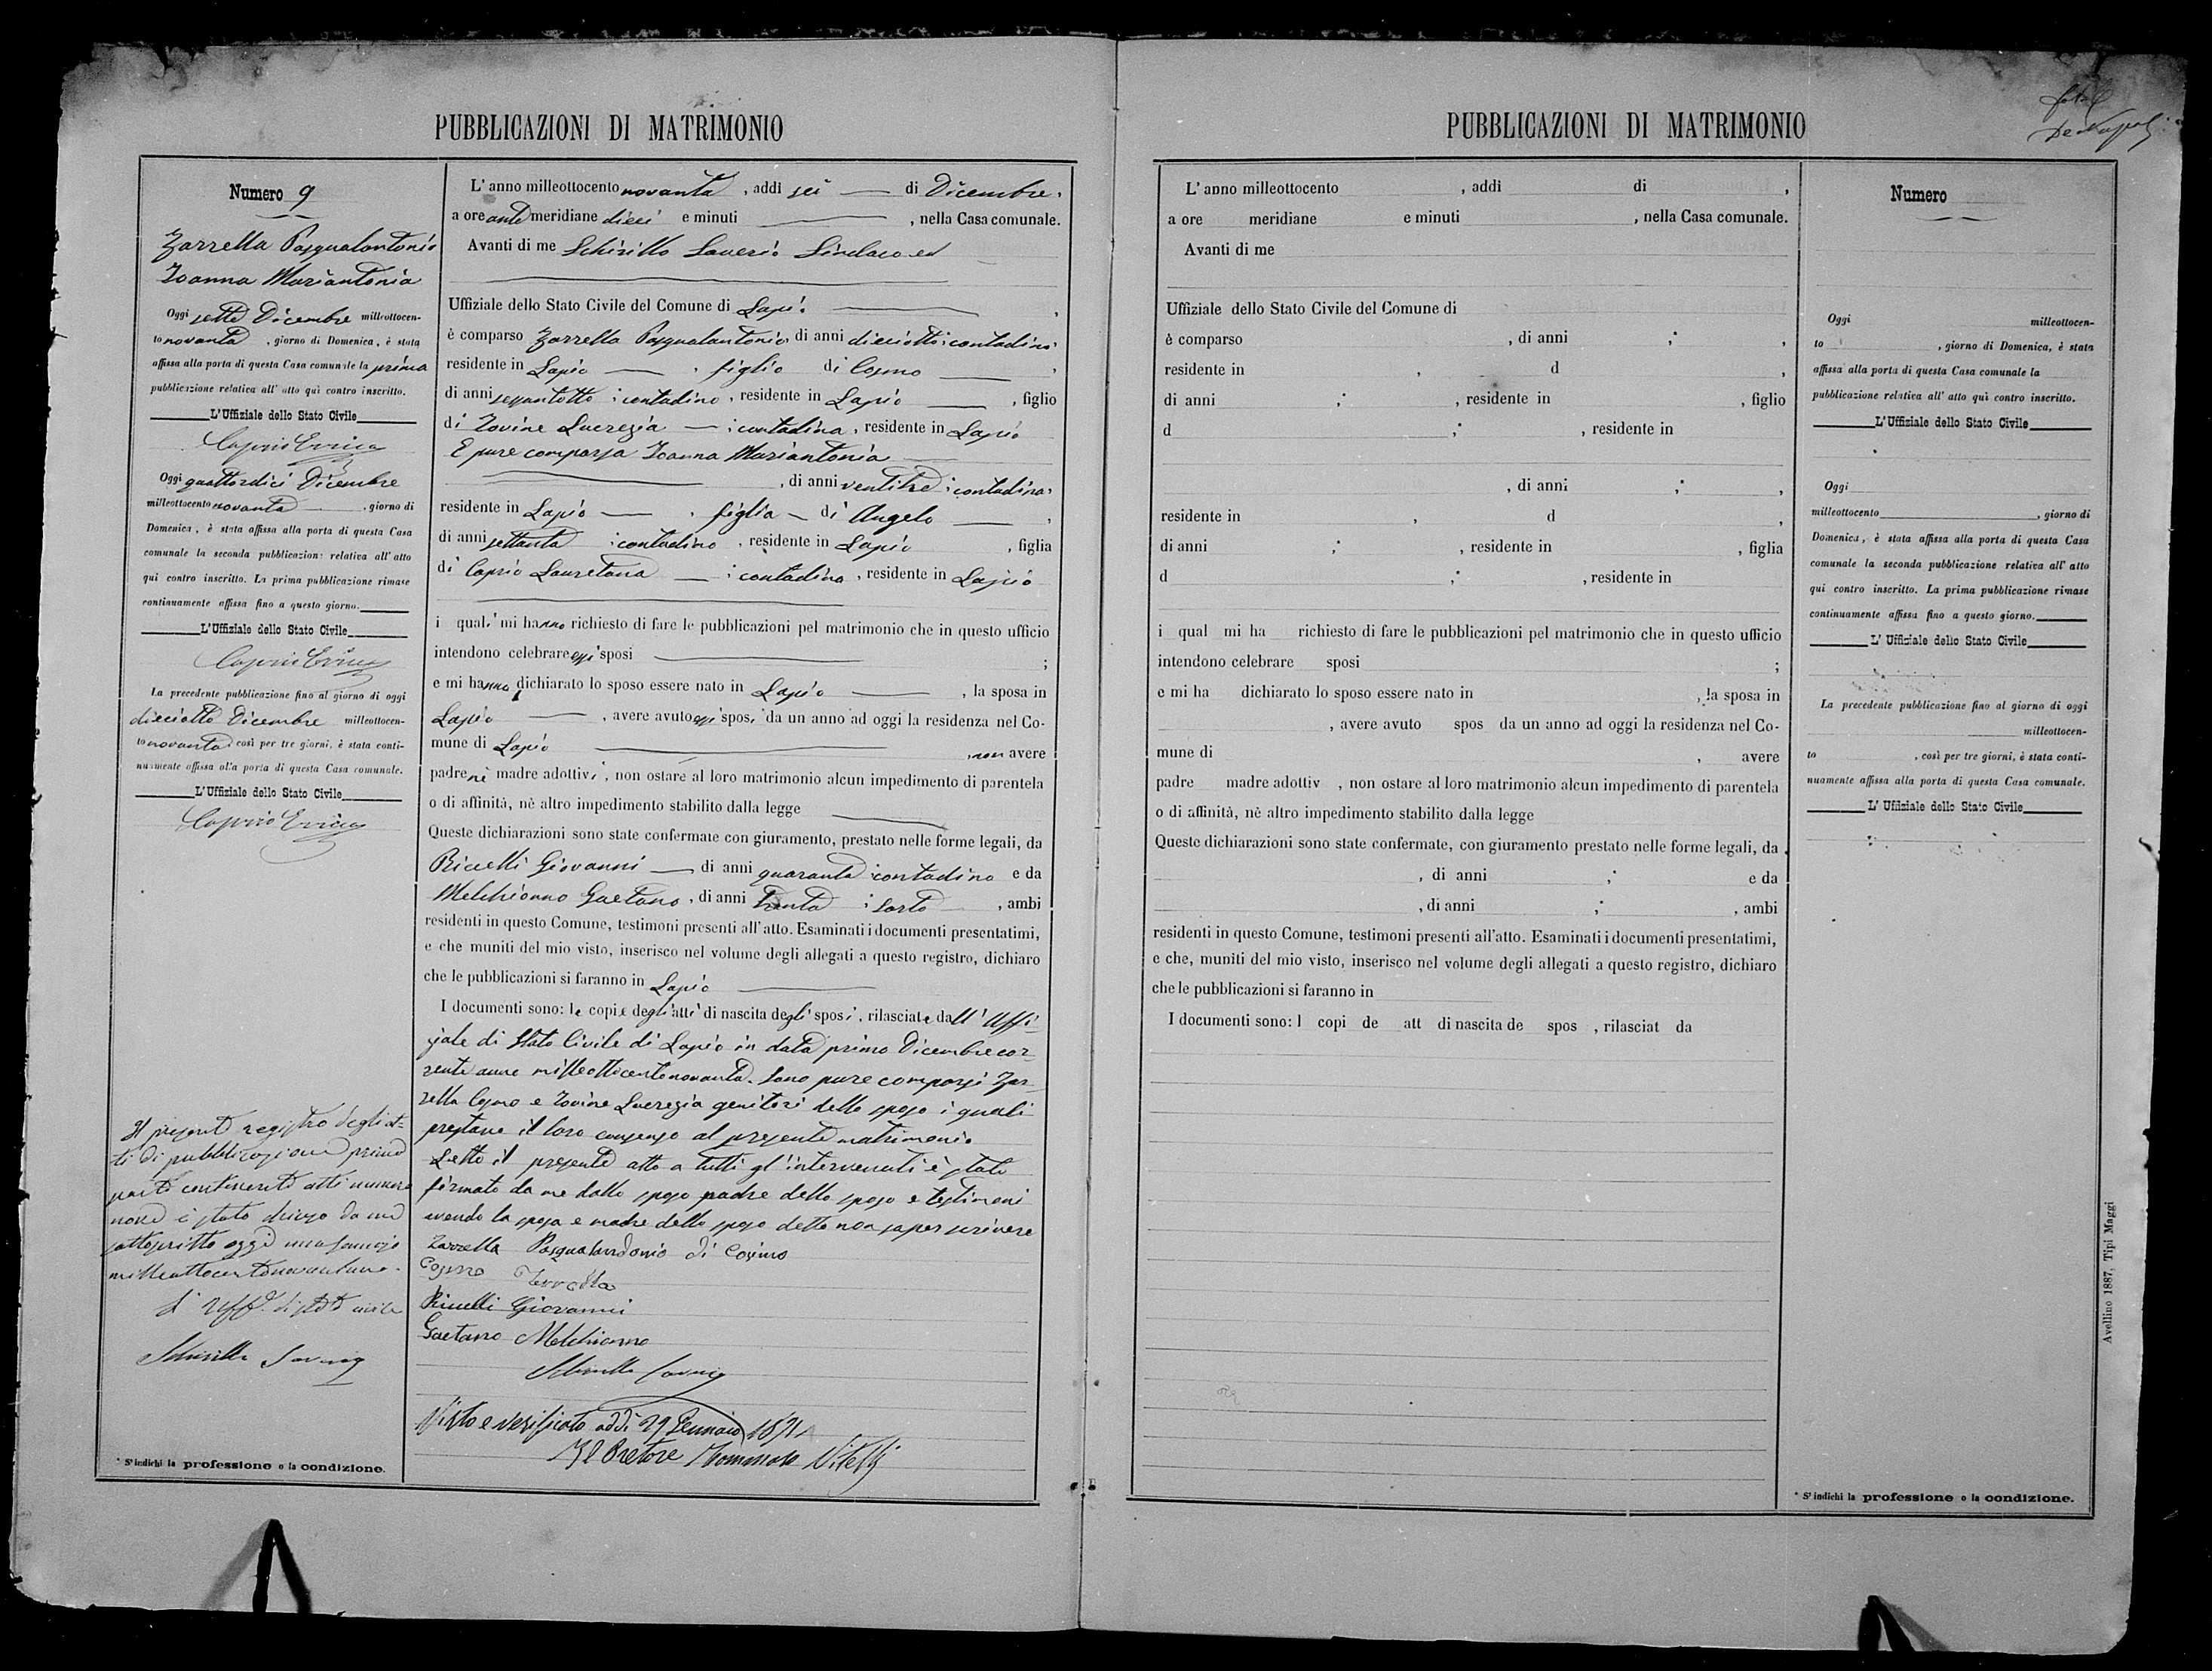 PUBBLICAZIONI DI MATRIMONIO
Numero 9
Zarrella Pasqualantonio
Ioanna Mariantonia
Oggi sette Dicembre milleottocen-
to novanta, giorno di Domenica, è stata
affissa alla porta di questa Casa comunale la prima
pubblicazione relativa all' atto quì contro inscritto.
L'Uffiziale dello Stato Civile
Caprio Errico
Oggi quattordici Dicembre
milleottocento novanta, giorno di
Domenica, è stata affissa alla porta di questa Casa
comunale la seconda pubblicazione relativa all' atto
quì contro inscritto. La prima pubblicazione rimase
continuamente affissa fino a questo giorno.
L'Uffiziale dello Stato Civile
Caprio Errico
La precedente pubblicazione fino al giorno di oggi
dieciotto Dicembre milleottocen-
to novanta così per tre giorni, è stata conti-
nuamente affissa alla porta di questa Casa comunale.
L'Uffiziale dello Stato Civile
Caprio Errico
Il presente registro degli at-
ti di pubblicazione prima
parte contenente atti numero
nove è stato chiuso da me
sottoscritto oggi uno Gennajo
milleottocentonovantuno.
L'Uff. di stato civile
Schirillo Saverio
* S'indichi la professione o la condizione.
L' anno milleottocento novanta, addì sei di Dicembre,
a ore ante meridiane dieci e minuti , nella Casa comunale.
Avanti di me Schirillo Saverio Sindaco ed
Uffiziale dello Stato Civile del Comune di Lapio ,
è comparso Zarrella Pasqualantonio di anni dieciotto; contadino,
residente in Lapio , figlio di Cosmo ,
di anni sessantotto; contadino, residente in Lapio , figlio
di Iovine Lucrezia ; contadina, residente in Lapio
E pure comparsa Ioanna Mariantonia
, di anni ventitre; contadina,
residente in Lapio , figlia di Angelo ,
di anni settanta; contadino, residente in Lapio , figlia
di Caprio Lauretana ; contadina, residente in Lapio
i quali mi hanno richiesto di fare le pubblicazioni pel matrimonio che in questo ufficio
intendono celebrare essi sposi ;
e mi hanno dichiarato lo sposo essere nato in Lapio , la sposa in
Lapio , avere avuto essi sposi da un anno ad oggi la residenza nel Co-
mune di Lapio , non avere
padre nè madre adottivi, non ostare al loro matrimonio alcun impedimento di parentela
o di affinità, nè altro impedimento stabilito dalla legge
Queste dichiarazioni sono state confermate con giuramento, prestato nelle forme legali, da
Riccelli Giovanni di anni quaranta contadino e da
Melchionno Gaetano, di anni trenta ; sarto , ambi
residenti in questo Comune, testimoni presenti all'atto. Esaminati i documenti presentatimi,
e che muniti del mio visto, inserisco nel volume degli allegati a questo registro, dichiaro
che le pubblicazioni si faranno in Lapio
I documenti sono: le copie degli atti di nascita degli sposi, rilasciate dall' Uffi-
ziale di Stato Civile di Lapio in data primo Dicembre cor-
rente anno milleottocentonovanta. Sono pure comparsi Zar-
rella Cosmo e Iovine Lucrezia genitori dello sposo i quali
prestano il loro consenso al presente matrimonio
Letto il presente atto a tutti gl'intervenuti è stato
firmato da me dallo sposo padre dello sposo e testimoni
avendo la sposa e madre dello sposo detto non saper scrivere
Zarrella Pasqualandonio di Cosimo
Cosmo Zerrella
Riccelli Giovanni
Gaetano Melchionno
Schirillo Saverio
Visto e verificato addì 29 Gennaio 1891
Il Pretore Tommaso Vitelli
PUBBLICAZIONI DI MATRIMONIO
L' anno milleottocento , addì di ,
a ore meridiane e minuti , nella Casa comunale.
Avanti di me
Uffiziale dello Stato Civile del Comune di
è comparso , di anni ; ,
residente in , d ,
di anni ; , residente in , figlio
d ; , residente in
, di anni ; ,
residente in , d ,
di anni ; , residente in , figlia
d ; , residente in
i qual mi ha richiesto di fare le pubblicazioni pel matrimonio che in questo ufficio
intendono celebrare sposi ;
e mi ha dichiarato lo sposo essere nato in , la sposa in
, avere avuto spos da un anno ad oggi la residenza nel Co-
mune di , avere
padre madre adottiv , non ostare al loro matrimonio alcun impedimento di parentela
o di affinità, nè altro impedimento stabilito dalla legge
Queste dichiarazioni sono state confermate, con giuramento prestato nelle forme legali, da
, di anni ; e da
, di anni ; , ambi
residenti in questo Comune, testimoni presenti all'atto. Esaminati i documenti presentatimi,
e che, muniti del mio visto, inserisco nel volume degli allegati a questo registro, dichiaro
che le pubblicazioni si faranno in
I documenti sono: l copi de att di nascita de spos , rilasciat da
Numero
Oggi milleottocen-
to , giorno di Domenica, è stata
affissa alla porta di questa Casa comunale la
pubblicazione relativa all' atto quì contro inscritto.
L'Uffiziale dello Stato Civile
Oggi
milleottocento , giorno di
Domenica, è stata affissa alla porta di questa Casa
comunale la seconda pubblicazione relativa all' atto
quì contro inscritto. La prima pubblicazione rimase
continuamente affissa fino a questo giorno.
L' Uffiziale dello Stato Civile
La precedente pubblicazione fino al giorno di oggi
milleottocen-
to , così per tre giorni, è stata conti-
nuamente affissa alla porta di questa Casa comunale.
L' Uffiziale dello Stato Civile
* S'indichi la professione o la condizione.
Avellino 1887, Tipi Maggi